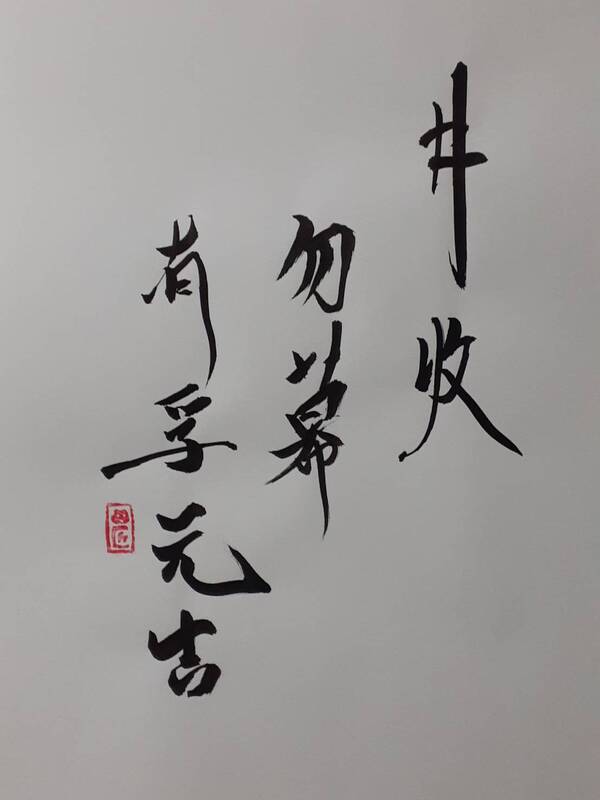 井收
勿幕
有孚元吉